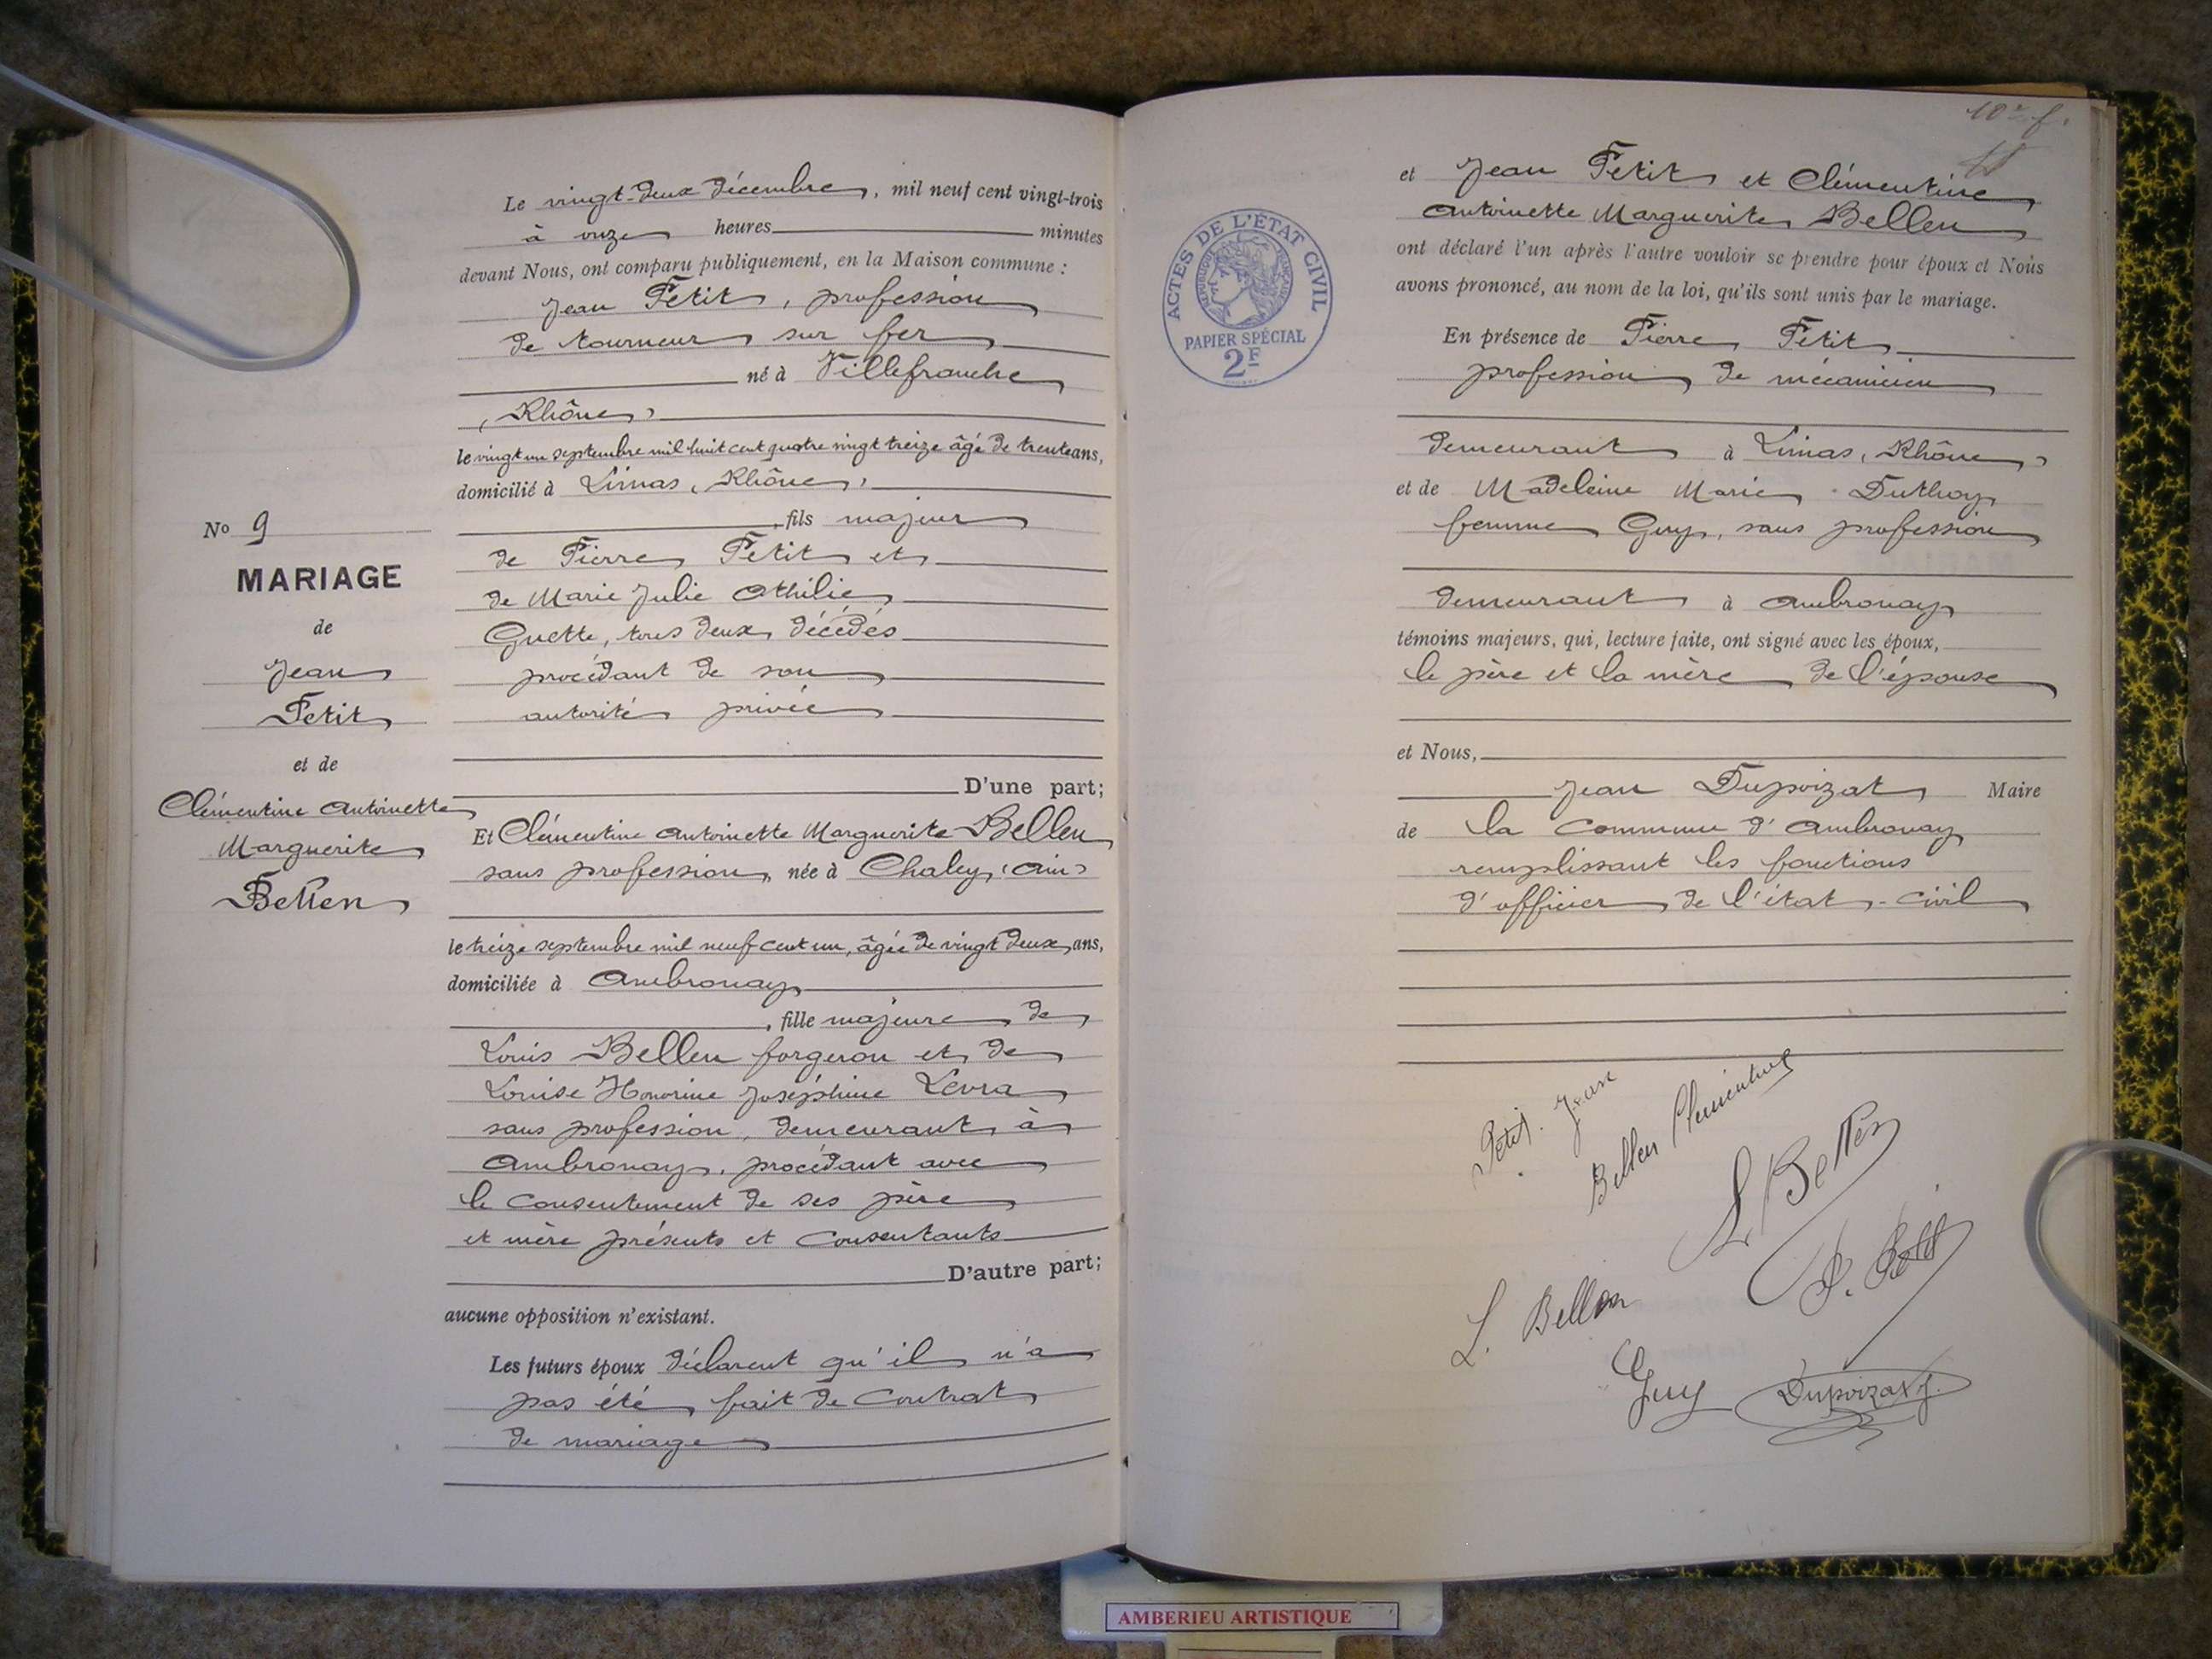 Le vingt-deux décembre, mil neuf cent vingt-trois
à onze heures minutes
devant Nous, ont comparu publiquement, en la Maison commune :
Jean Petit, profession
de tourneur sur fer
né à Villefranche
(Rhône)
le vingt un septembre mil huit cent quatre vingt treize âgé de trente ans,
domicilié à Limas (Rhône)
fils majeur
de Pierre Petit et
de Marie Julie Othilie
Guette, tous deux décédés
procédant de son
autorité privée
D'une part;
Et Clémentine Antoinette Marguerite Bellen
sans profession, née à Chaley (Ain)
le treize septembre mil neuf cent un, âgée de vingt deux ans,
domiciliée à Ambronay
, fille majeure de
Louis Bellen forgeron et de
Louise Honorine Joséphine Levra
sans profession, demeurant à
Ambronay, procédant avec
le consentement de ses père
et mère présents et consentants
D'autre part;
aucune opposition n'existant.
Les futurs époux déclarent qu'il n'a
pas été fait de contrat
de mariage
No 9
MARIAGE
de
Jean
Petit
et de
Clémentine Antoinette
Marguerite
Bellen
et Jean Petit et Clémentine
Antoinette Marguerite Bellen
ont déclaré l'un après l'autre vouloir se prendre pour époux et Nous
avons prononcé, au nom de la loi, qu'ils sont unis par le mariage.
En présence de Pierre Petit
profession de mécanicien
demeurant à Limas (Rhône)
et de Madeleine Marie Duthoy
femme Guy, sans profession
demeurant à Ambronay
témoins majeurs, qui, lecture faite, ont signé avec les époux,
le père et la mère de l'épouse
et Nous,
Jean Dupoizat Maire
de la commune d'Ambronay
remplissant les fonctions
d'officier de l'état-civil
Petit Jean
Bellen Clémentine
L Bellen
P. Petit
L. Bellen
Guy
Dupoizat J.
ACTES DE L'ÉTAT CIVIL
RÉPUBLIQUE FRANÇAISE
PAPIER SPÉCIAL
2F
AMBERIEU ARTISTIQUE